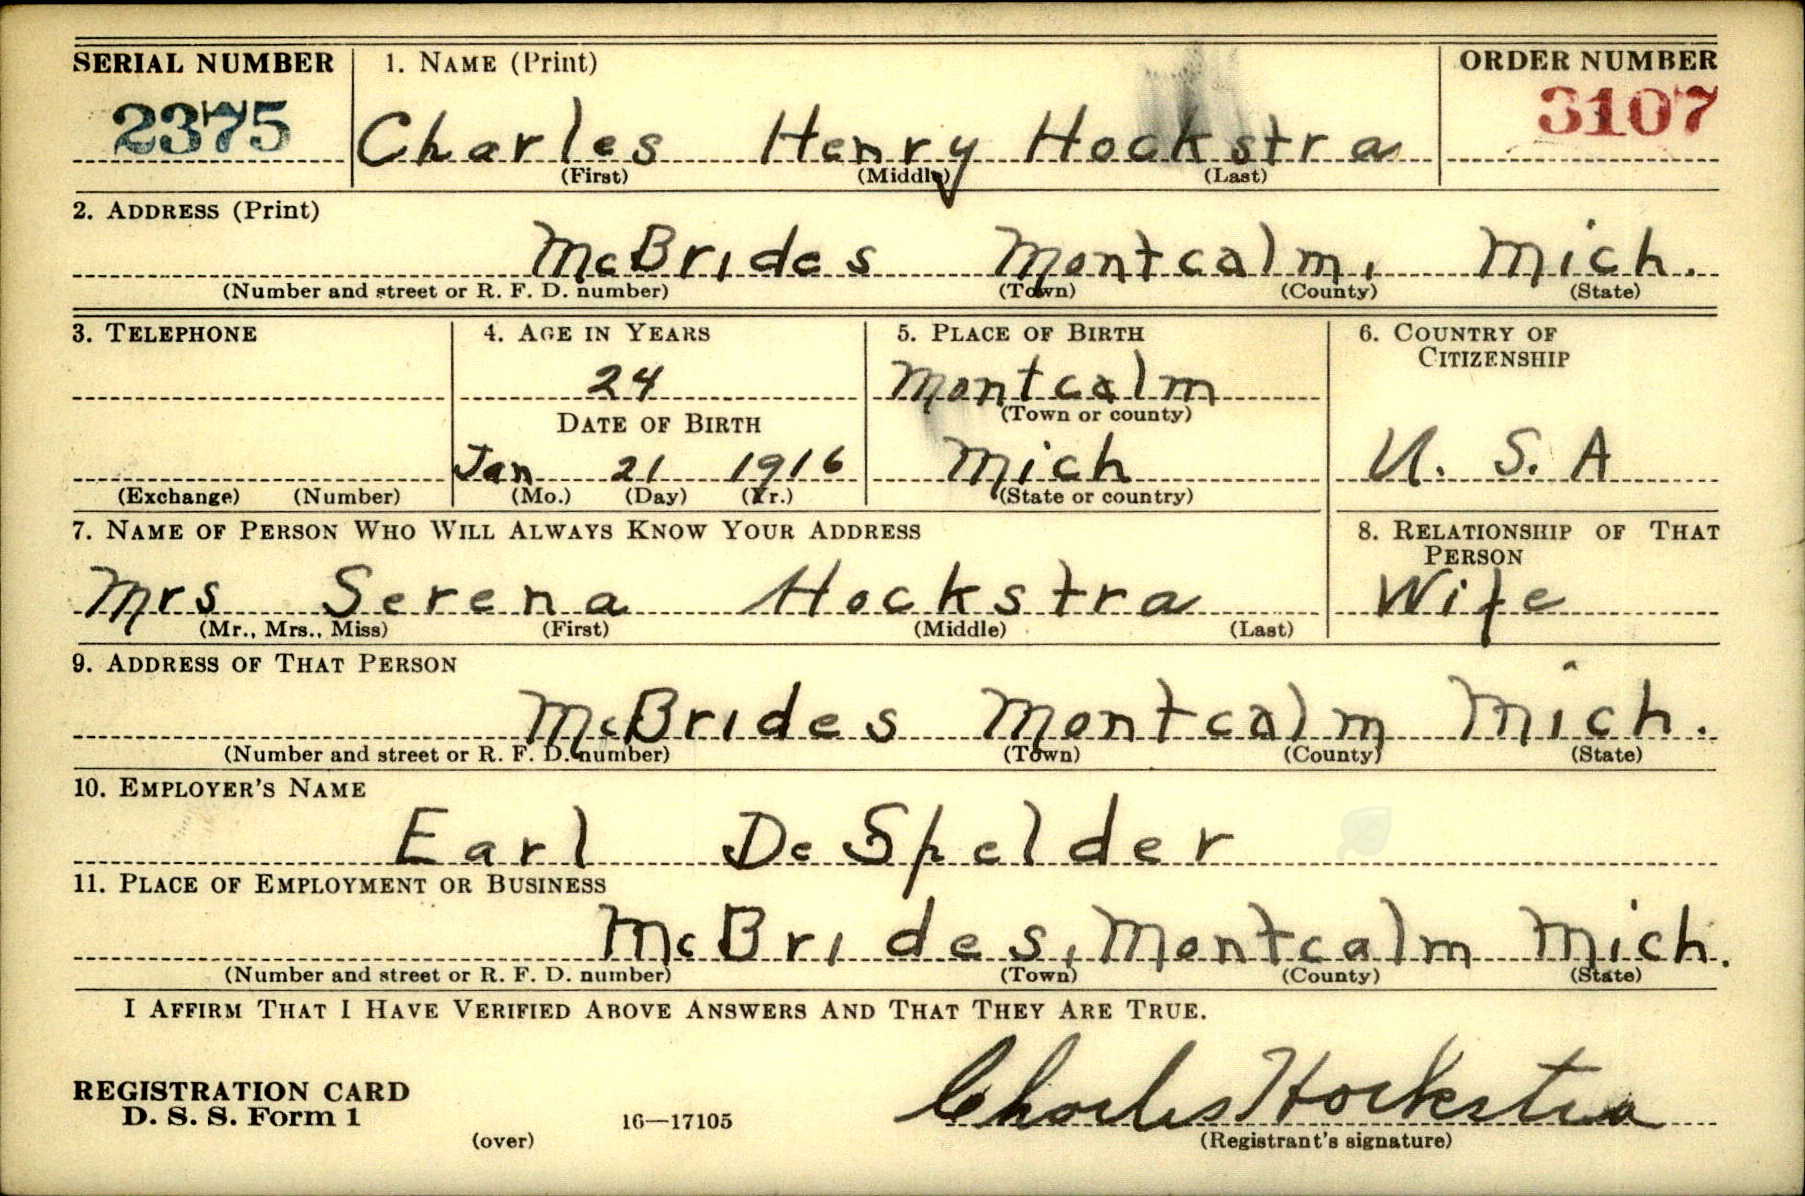 SERIAL NUMBER 1. NAME (Print) ORDER NUMBER
2375 Charles Henry Hockstra 3107
(First) (Middle) (Last)
2. ADDRESS (Print)
McBrides Montcalm, Mich.
(Number and street or R. F. D. number) (Town) (County) (State)
3. TELEPHONE 4. AGE IN YEARS 5. PLACE OF BIRTH 6. COUNTRY OF CITIZENSHIP
24 Montcalm
DATE OF BIRTH (Town or county)
Jan 21 1916 Mich U. S. A
(Exchange) (Number) (Mo.) (Day) (Yr.) (State or country)
7. NAME OF PERSON WHO WILL ALWAYS KNOW YOUR ADDRESS 8. RELATIONSHIP OF THAT PERSON
Mrs Serena Hockstra Wife
(Mr., Mrs., Miss) (First) (Middle) (Last)
9. ADDRESS OF THAT PERSON
McBrides Montcalm Mich.
(Number and street or R. F. D. number) (Town) (County) (State)
10. EMPLOYER'S NAME
Earl DeSpelder
11. PLACE OF EMPLOYMENT OR BUSINESS
McBrides, Montcalm Mich.
(Number and street or R. F. D. number) (Town) (County) (State)
I AFFIRM THAT I HAVE VERIFIED ABOVE ANSWERS AND THAT THEY ARE TRUE.
REGISTRATION CARD
D. S. S. Form 1 16—17105 Charles Hockstra
(over) (Registrant's signature)